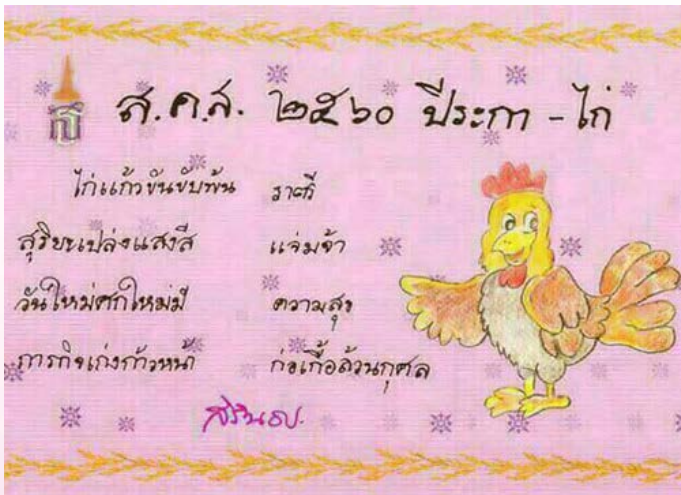 ส
ส.ค.ส. ๒๕๖๐ ปีระกา - ไก่
ไก่แก้วขันขับพ้น ราตรี
สุริยะเปล่งแสงสี แจ่มจ้า
วันใหม่ศกใหม่มี ความสุข
ภารกิจเก่งก้าวหน้า ก่อเกื้อล้วนกุศล
สิรินธร